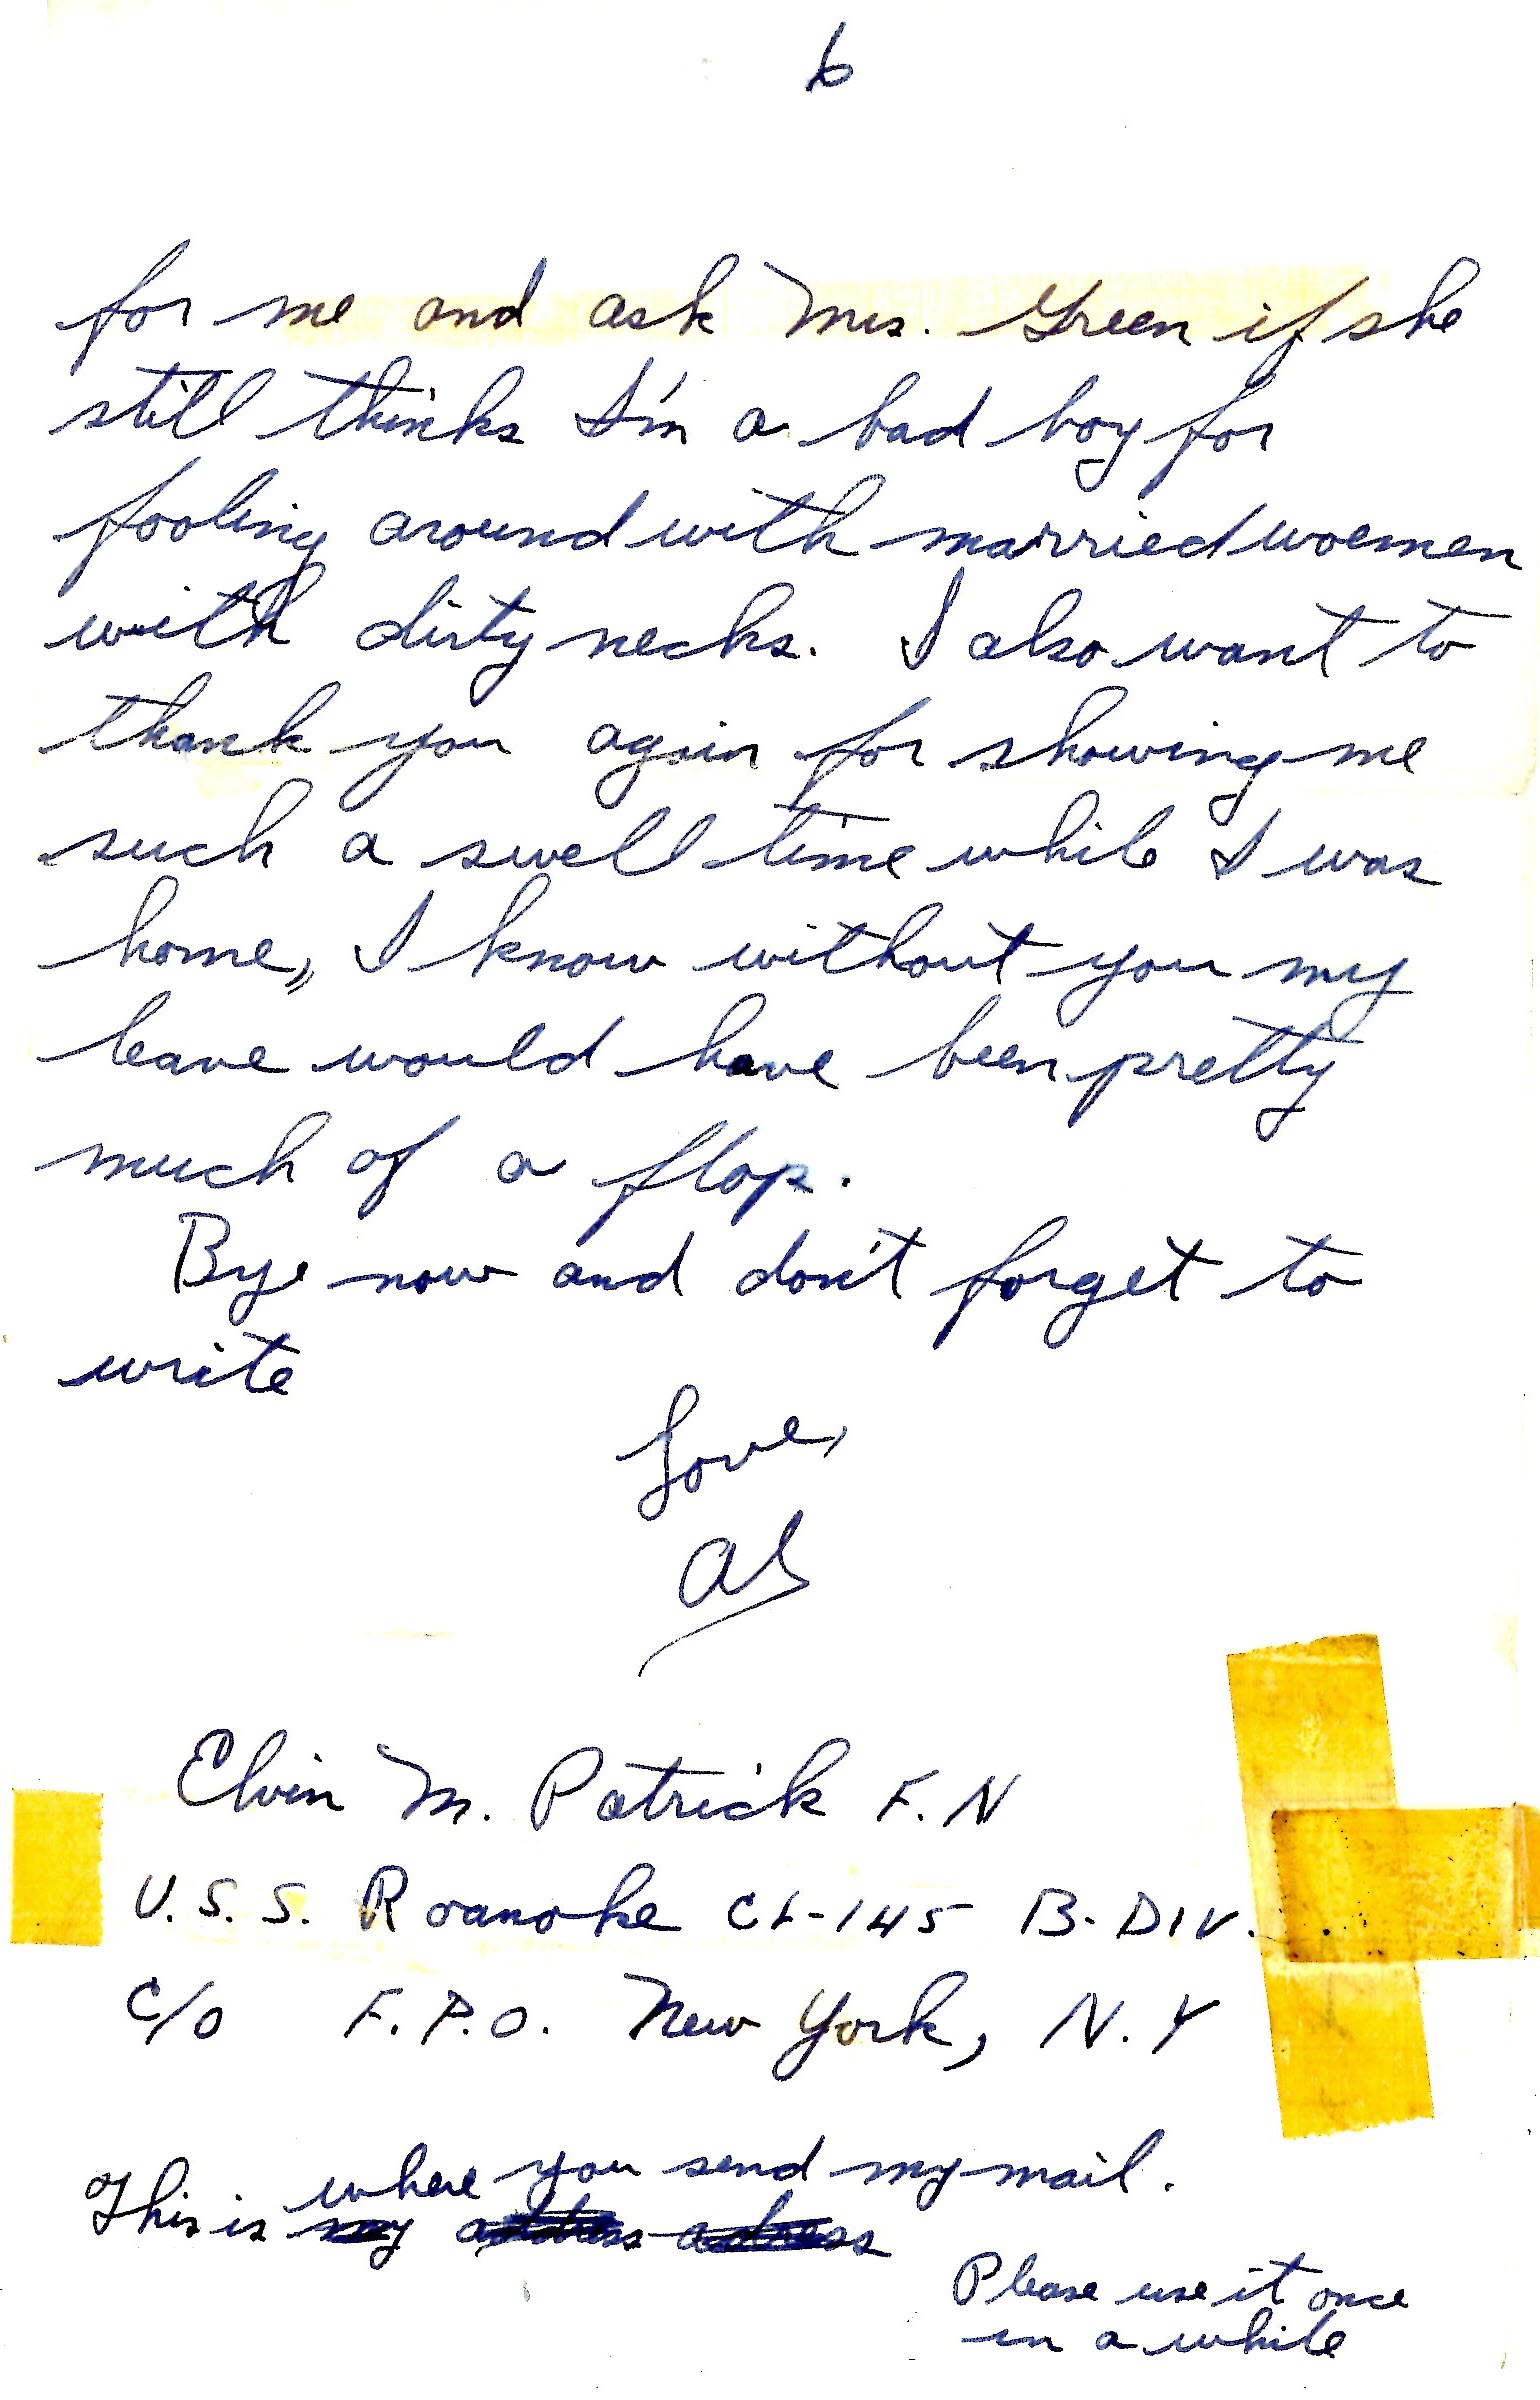 6
for me and ask Mrs. Green if she
still thinks I'm a bad boy for
fooling around with married woemen
with dirty necks. I also want to
thank you again for showing me
such a swell time while I was
home,, I know without you my
leave would have been pretty
much of a flop.
Bye now and don't forget to
write
Love,
Al
Elvin M. Patrick F.N
U.S.S. Roanoke CL-145 B-DIV.
c/o F.P.O. New York, N.Y
where you send my mail.
This is my address adress
Please use it once
in a while